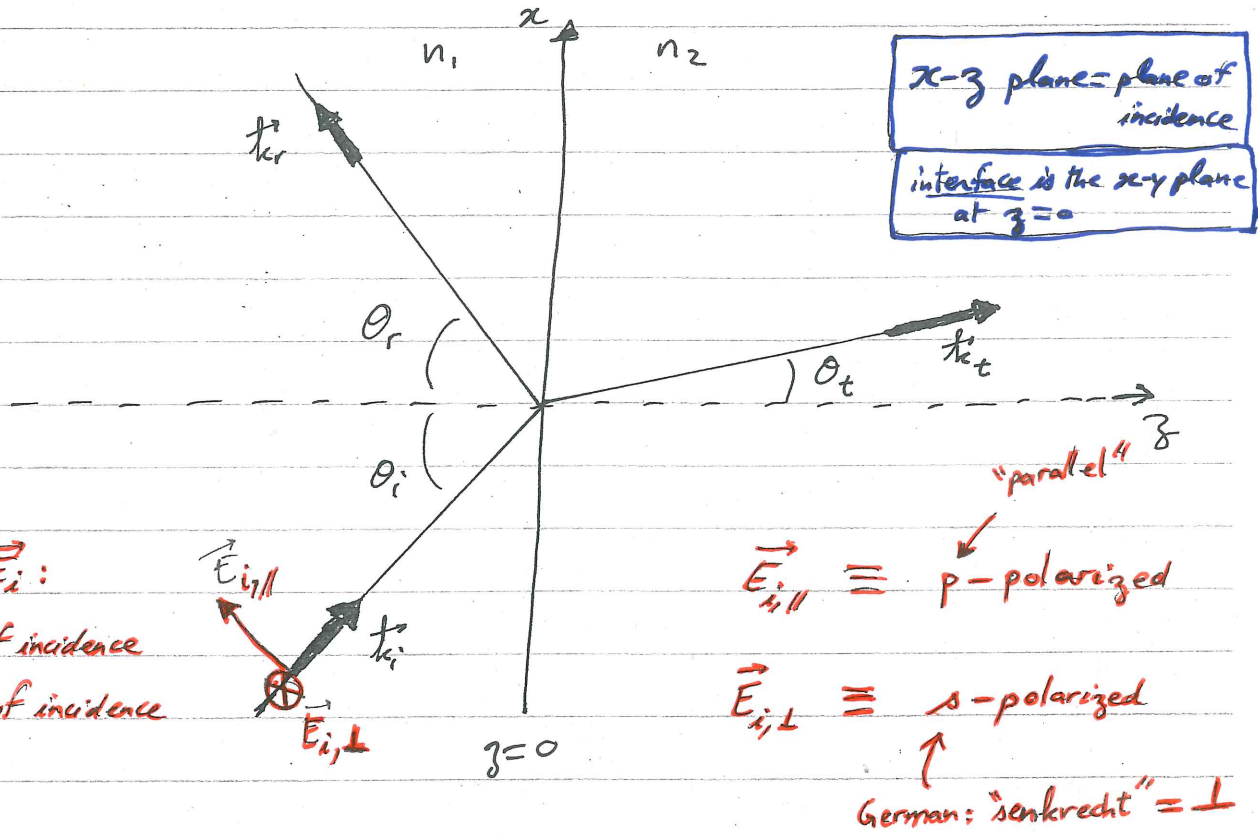 x
n₁
n₂
x-z plane = plane of
incidence
interface is the x-y plane
at z=0
k⃗r
θr
k⃗t
θt
z
θi
"parallel"
E⃗i:
E⃗i,∥
k⃗i
f incidence
of incidence
E⃗i,⊥
z=0
E⃗i,∥ ≡ p-polarized
E⃗i,⊥ ≡ s-polarized
German: "senkrecht" = ⊥